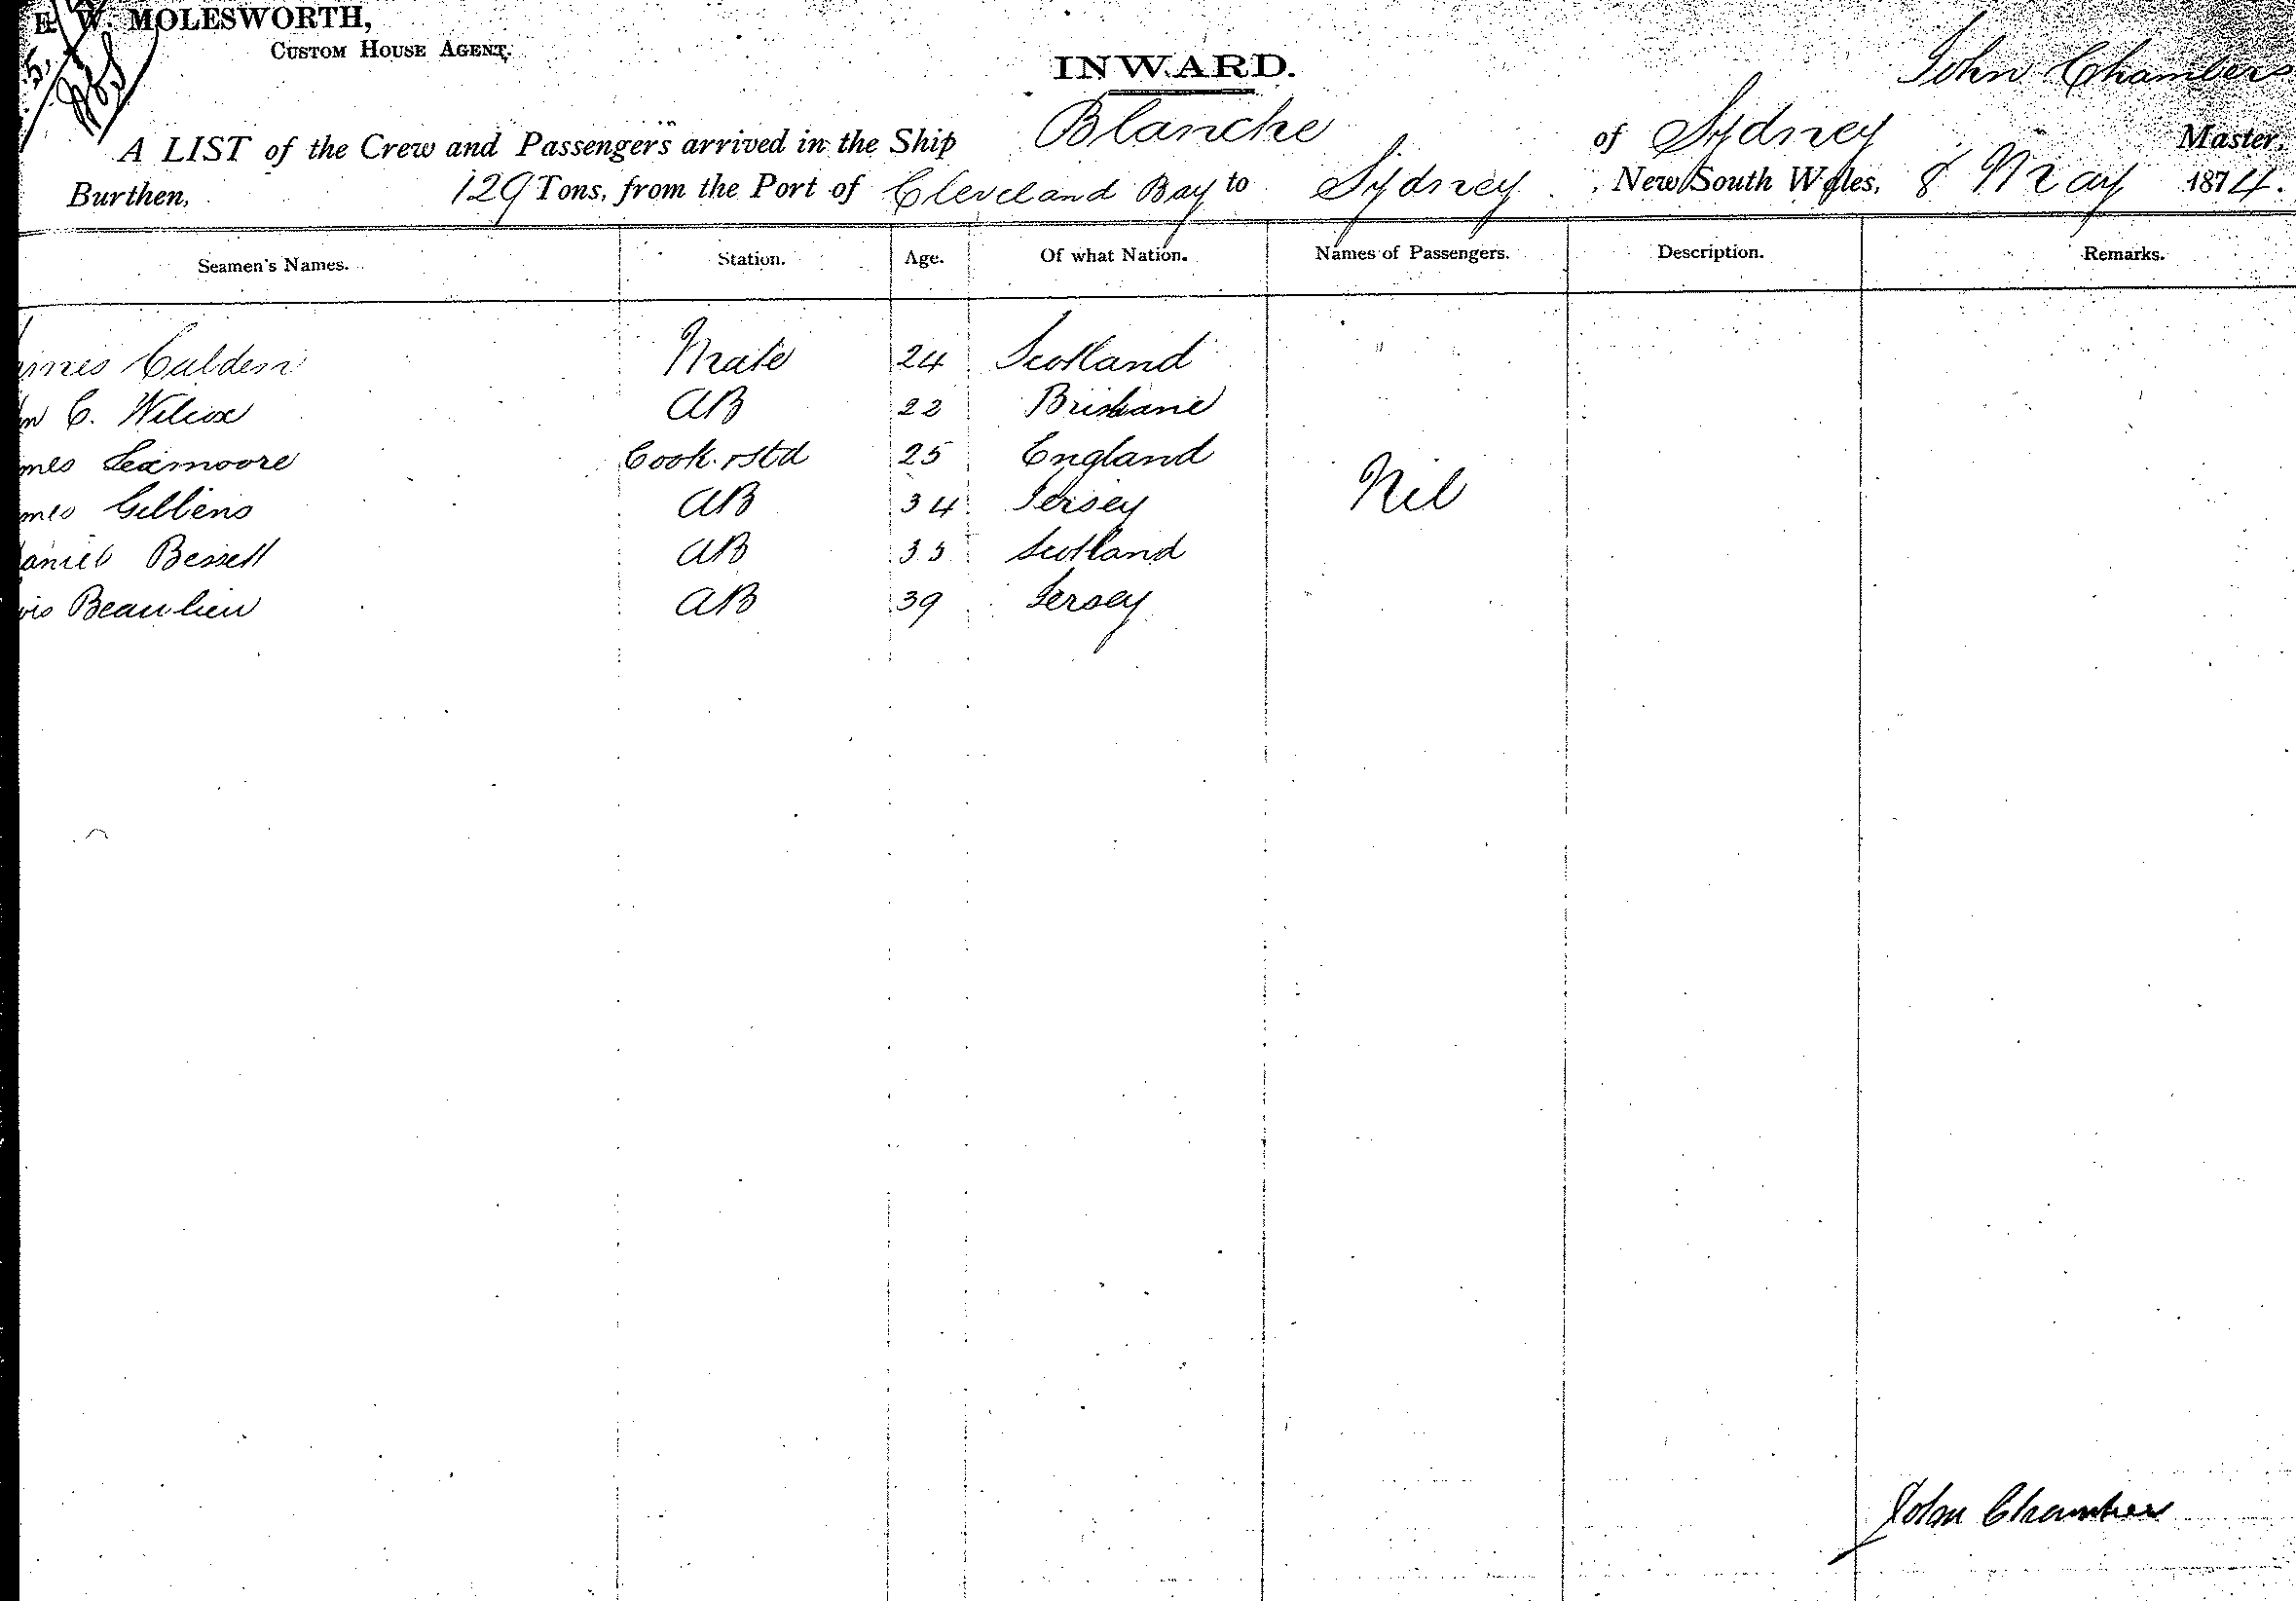 E. W. MOLESWORTH,
CUSTOM HOUSE AGENT.
INWARD.
John Chambers
A LIST of the Crew and Passengers arrived in the Ship Blanche of Sydney Master,
Burthen, 129 Tons, from the Port of Cleveland Bay to Sydney, New South Wales, 8 May 1874.
Seamen's Names. Station. Age. Of what Nation. Names of Passengers. Description. Remarks.
Mate 24 Scotland
C. Wilcox AB 22 Brisbane
Seamoore Cook & Std 25 England
Nil
Gibbens AB 34 Jersey
Bessell AB 35 Scotland
Beaulieu AB 39 Jersey
John Chambers